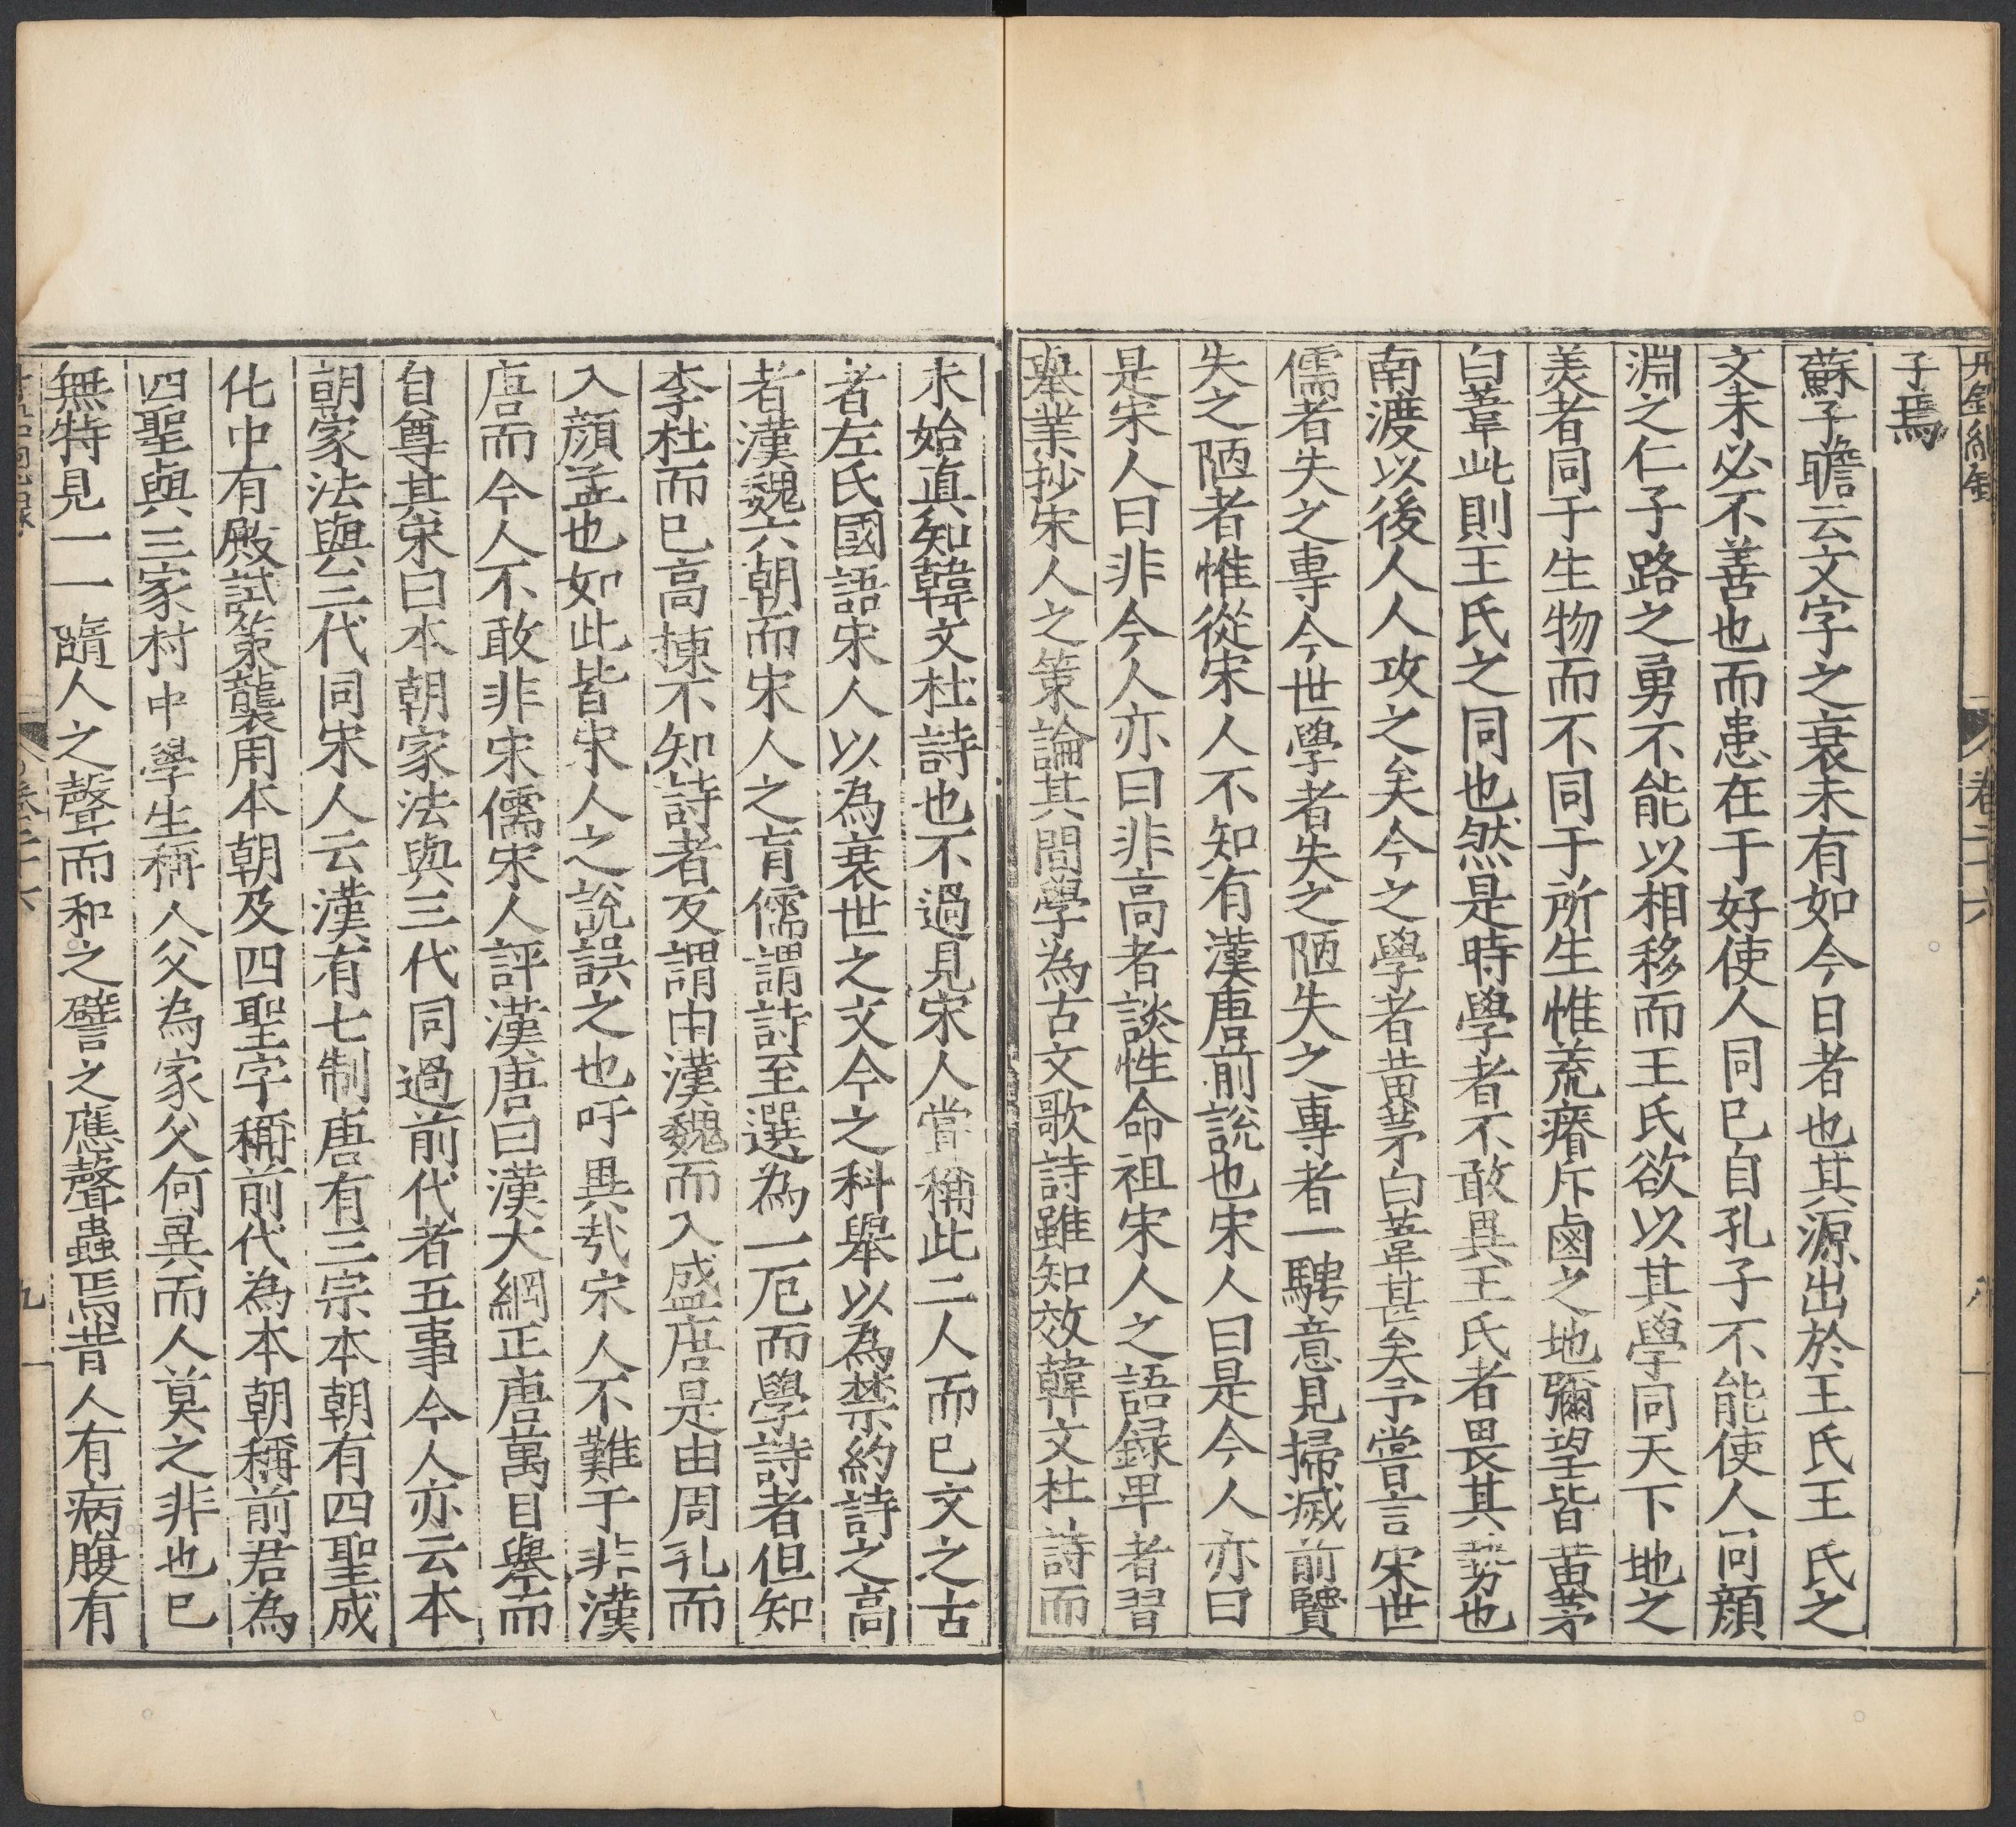 丹鉛總錄 卷二十六
子焉
蘇子瞻云文字之衰未有如今日者也其源出於王氏王氏之
文未必不善也而患在于好使人同已自孔子不能使人同顔
淵之仁子路之勇不能以相移而王氏欲以其學同天下地之
美者同于生物而不同于所生惟荒瘠斥鹵之地彌望皆黄茅
白葦此則王氏之同也然是時學者不敢異王氏者畏其勢也
南渡以後人人攻之矣今之學者黄茅白葦甚矣予嘗言宋世
儒者失之專今世學者失之陋失之專者一騁意見掃滅前賢
失之陋者惟從宋人不知有漢唐前說也宋人曰是今人亦曰
是宋人曰非今人亦曰非高者談性命祖宋人之語録卑者習
舉業抄宋人之策論其間學為古文歌詩雖知效韓文杜詩而
未始真知韓文杜詩也不過見宋人嘗稱此二人而已文之古
者左氏國語宋人以為衰世之文今之科舉以為禁約詩之高
者漢魏六朝而宋人之肓儒謂詩至選為一厄而學詩者但知
李杜而已高棟不知詩者反謂由漢魏而入盛唐是由周孔而
入顔孟也如此皆宋人之說誤之也吁異㢤宋人不難于非漢
唐而今人不敢非宋儒宋人評漢唐曰漢大綱正唐萬目舉而
自尊其宋曰本朝家法與三代同過前代者五事今人亦云本
朝家法與三代同宋人云漢有七制唐有三宗本朝有四聖成
化中有殿試策襲用本朝及四聖字稱前代為本朝稱前君為
四聖與三家村中學生稱人父為家父何異而人莫之非也已
無特見一一隨人之聲而和之譬之應聲蟲焉昔人有病腹有
卷二十六 九